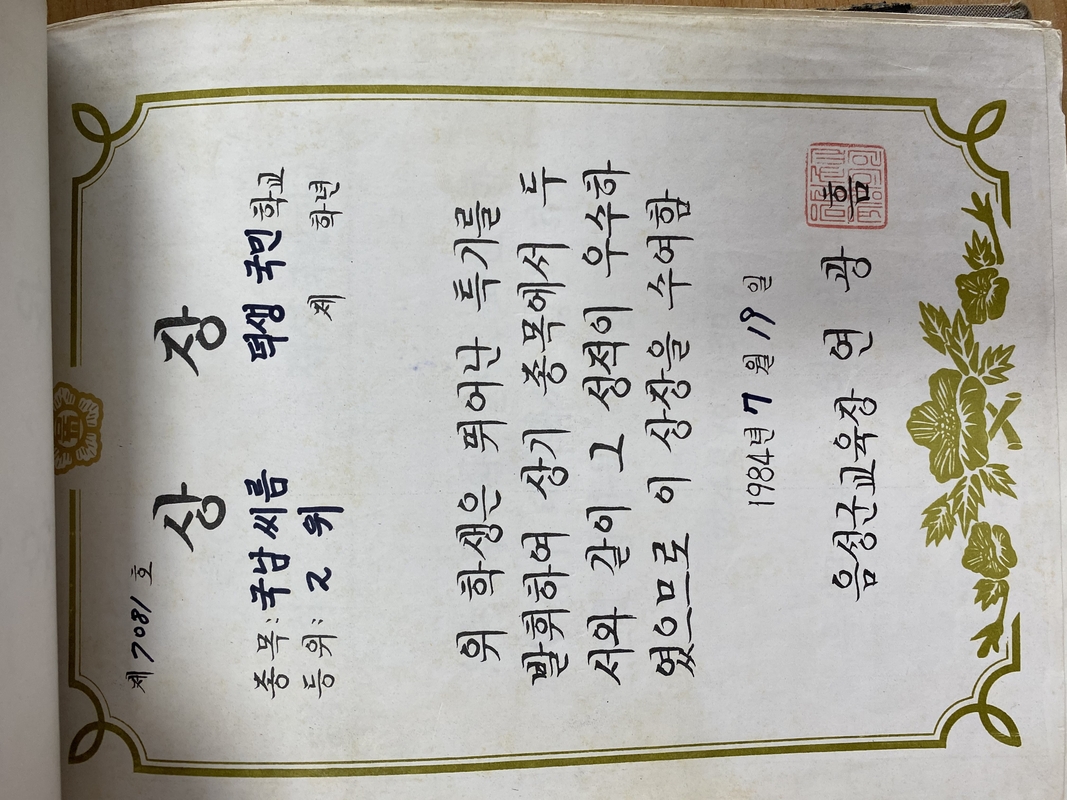 제 7081 호
상 장
종목: 국남씨름 덕생 국민학교
등위: 2 위 제 학년
위 학생은 뛰어난 특기를
발휘하여 상기 종목에서 두
서와 같이 그 성적이 우수하
였으므로 이 상장을 수여함
1984년 7월 19일
음성군교육장 연 광 흠